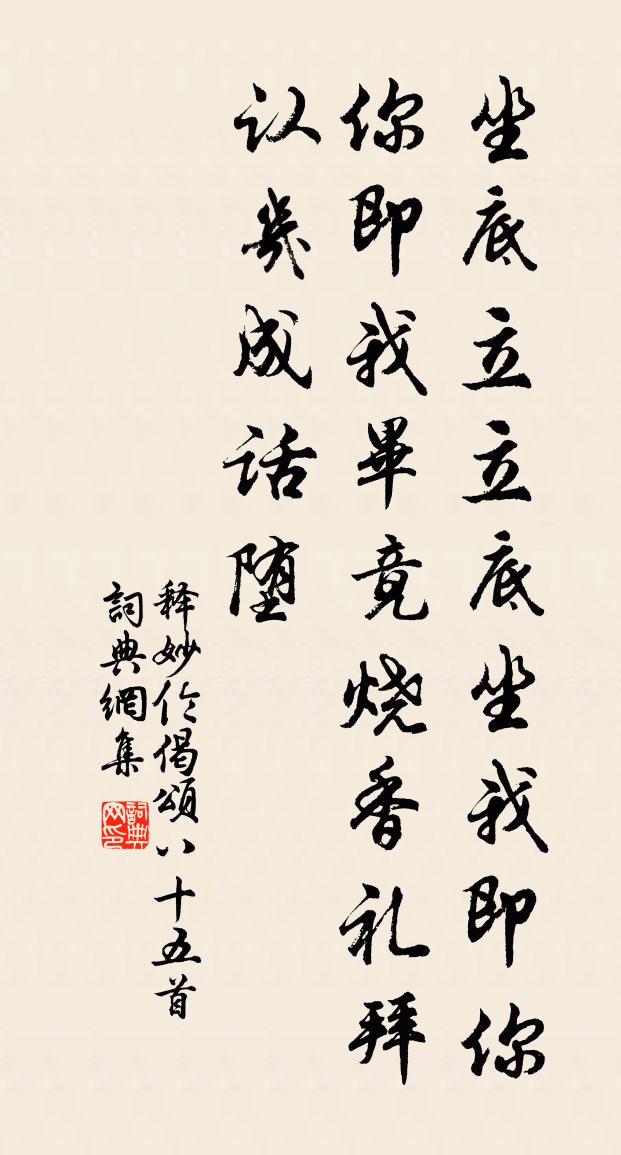 坐底立立底坐我即你
你即我畢竟烧香礼拜
认幾成话堕
释妙伦偈頌八十五首
詞典網集
詞典网印